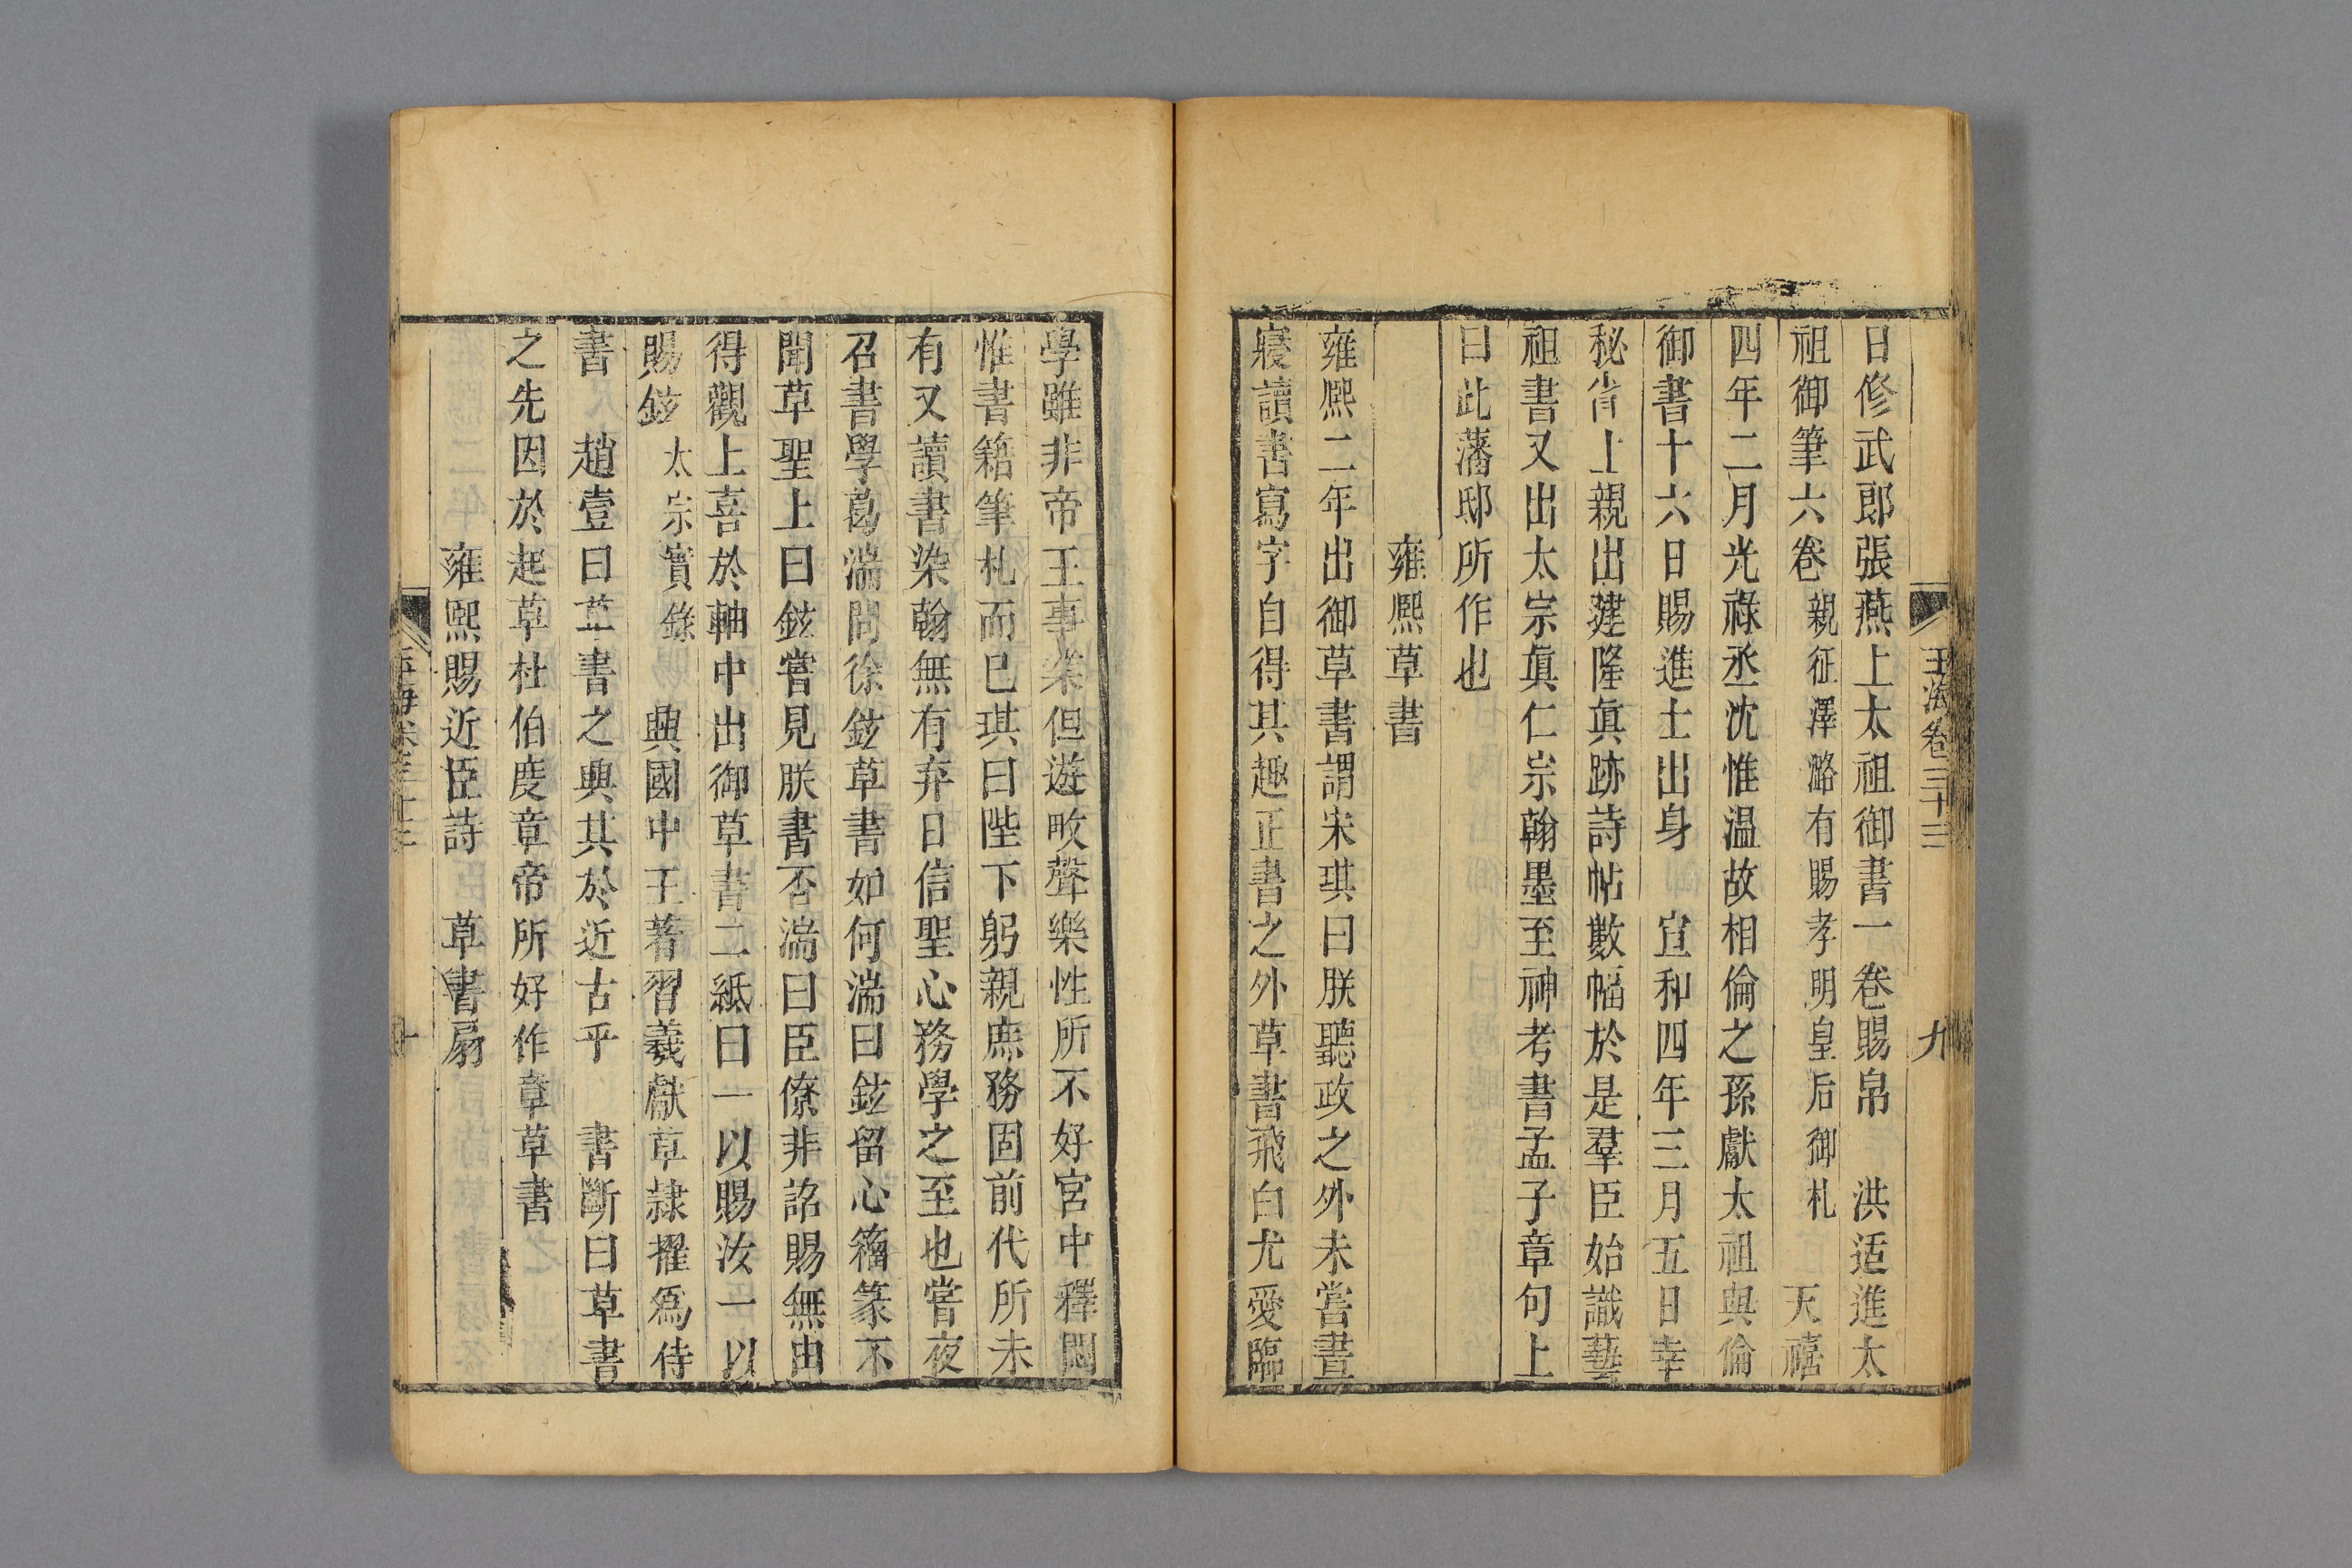 玉海卷三十三
九
日修武郎張燕上太祖御書一卷賜帛　洪适進太
祖御筆六卷親征澤潞有賜孝明皇后御札　天禧
四年二月光祿丞沈惟溫故相倫之孫獻太祖與倫
御書十六日賜進士出身　宣和四年三月五日幸
秘省上親出建隆眞跡詩帖數幅於是羣臣始識藝
祖書又出太宗眞仁宗翰墨至神考書孟子章句上
曰此藩邸所作也
雍熙草書
雍熙二年出御草書謂宋琪曰朕聽政之外未嘗晝
寢讀書寫字自得其趣正書之外草書飛白尤愛臨
學雖非帝王事業但遊畋聲樂性所不好宮中釋悶
惟書籍筆札而已琪曰陛下躬親庶務固前代所未
有又讀書染翰無有弃日信聖心務學之至也嘗夜
召書學葛湍問徐鉉草書如何湍曰鉉留心籀篆不
聞草聖上曰鉉嘗見朕書否湍曰臣僚非詔賜無由
得觀上喜於軸中出御草書二紙曰一以賜汝一以
賜鉉太宗實錄　興國中王著習羲獻草隸擢爲侍
書　趙壹曰草書之興其於近古乎　書斷曰草書
之先因於起草杜伯度章帝所好作章草書
雍熙賜近臣詩　草書扇
十